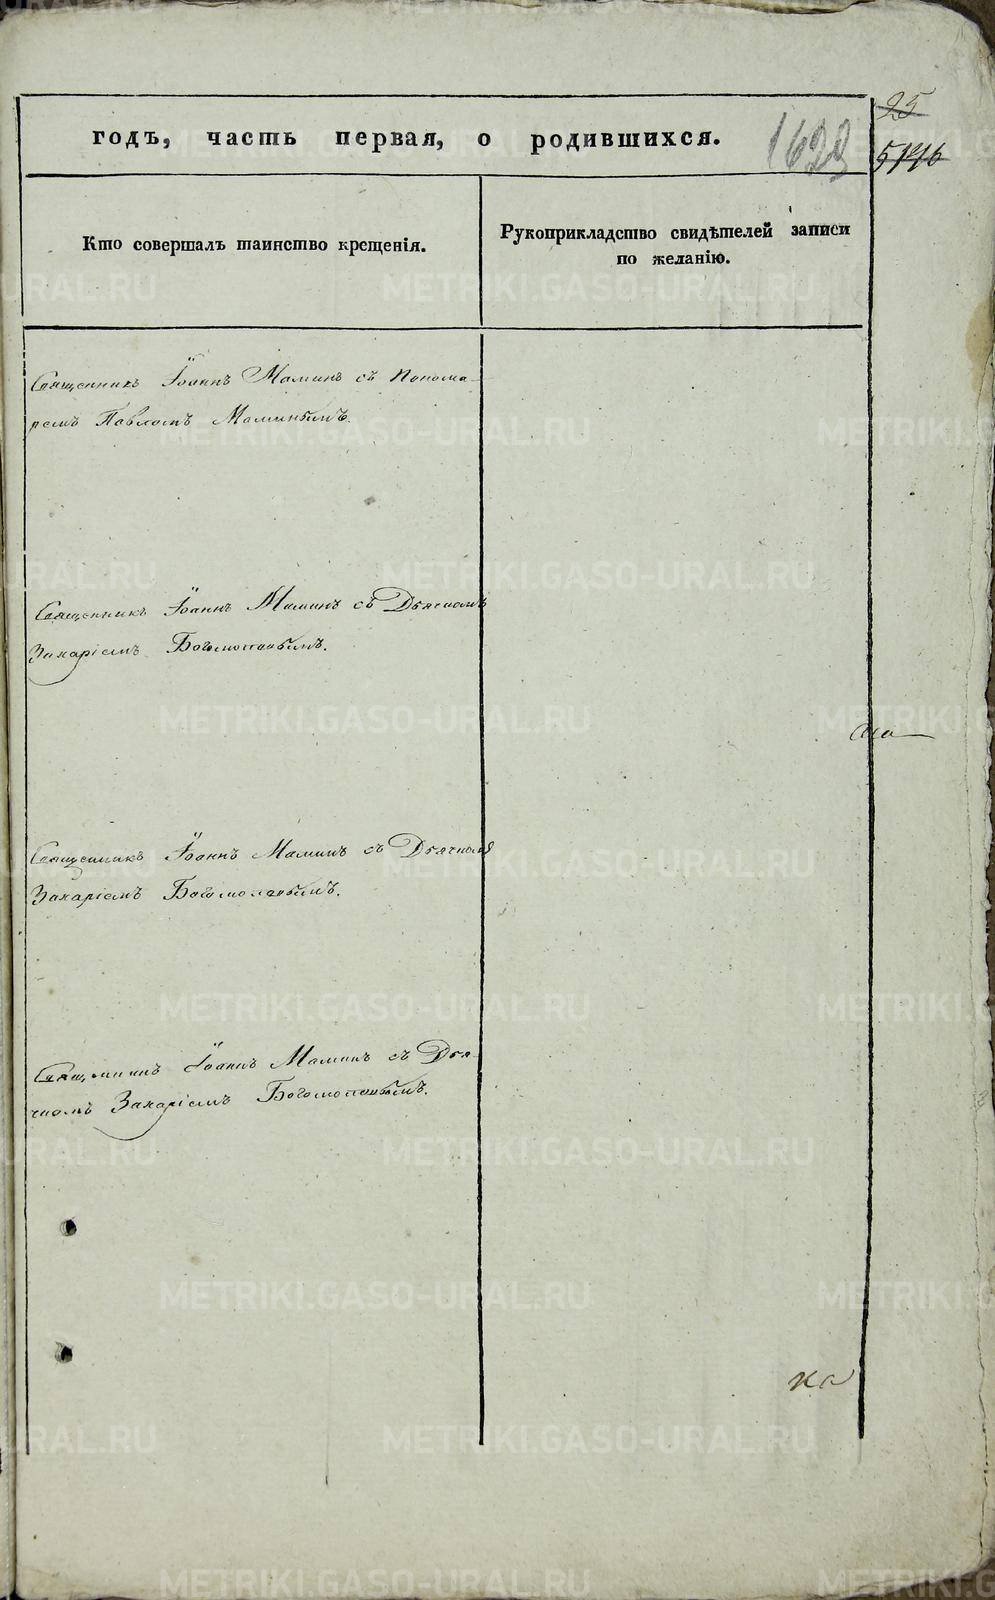 25
годъ, часть первая, о родившихся.
5146
Кто совершалъ таинство крещенія.
Рукоприкладство свидѣтелей записи
по желанію.
Священникъ Іоаннъ Маминъ съ Понома-
ремъ Павломъ Маминымъ.
Священникъ Іоаннъ Маминъ съ Дьячкомъ
Захаріемъ Богомоловымъ.
Священникъ Іоаннъ Маминъ съ Дьячкомъ
Захаріемъ Богомоловымъ.
Священникъ Іоаннъ Маминъ съ Дья-
чкомъ Захаріемъ Богомоловымъ.
METRIKI.GASO-URAL.RU